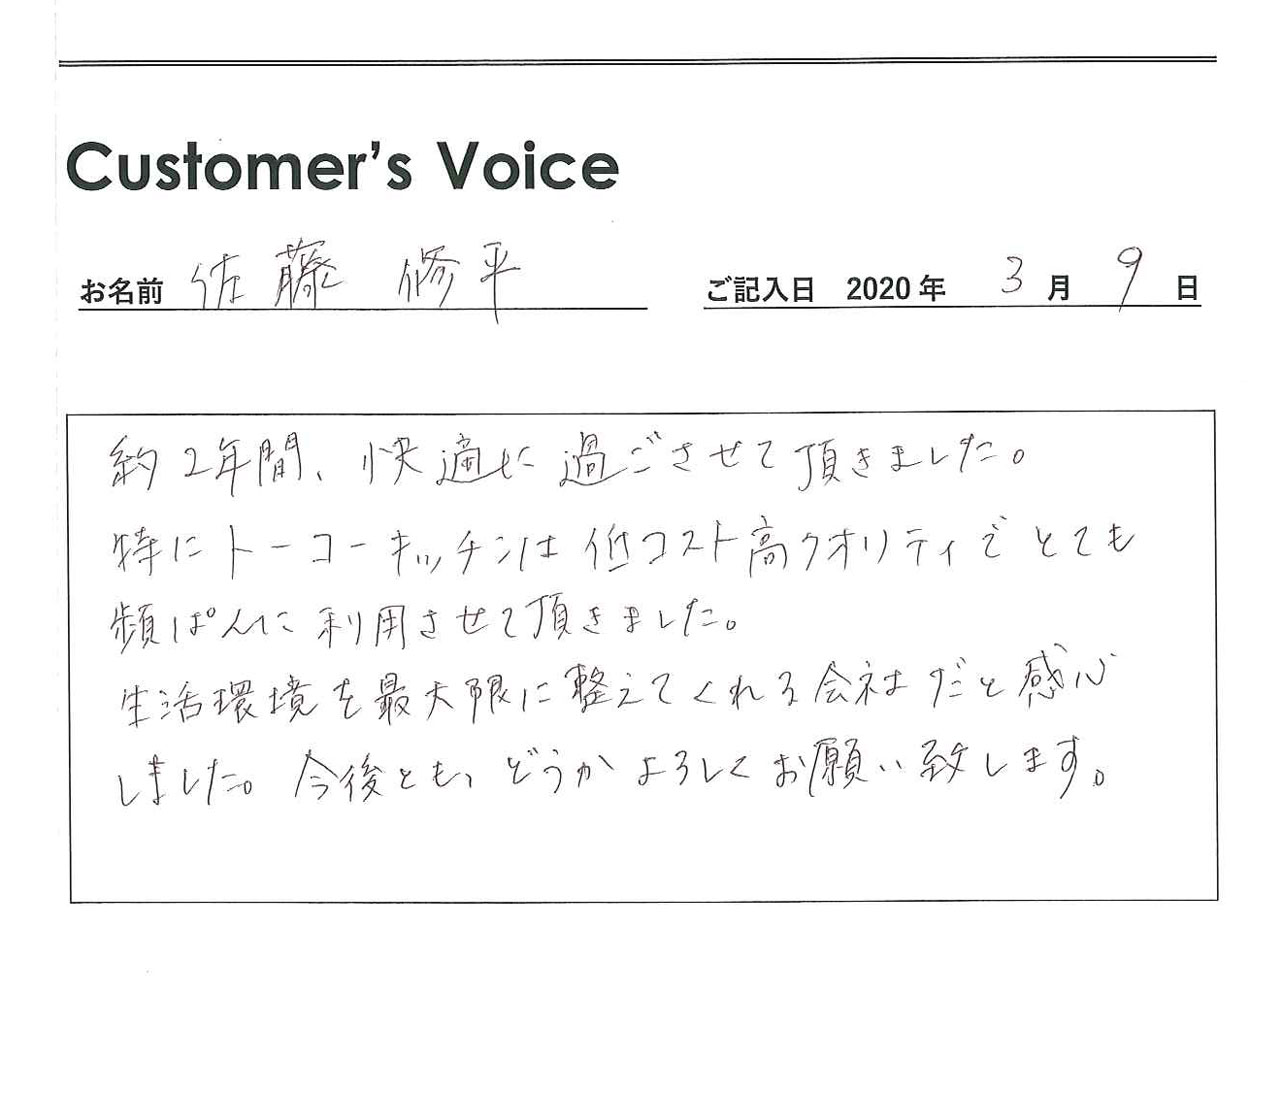 Customer's Voice
お名前 佐藤 修平 ご記入日 2020年 3月 9日
約2年間、快適に過ごさせて頂きました。
特にトーコーキッチンは低コスト高クオリティでとても
頻ぱんに利用させて頂きました。
生活環境を最大限に整えてくれる会社だと感心
しました。今後とも、どうかよろしくお願い致します。